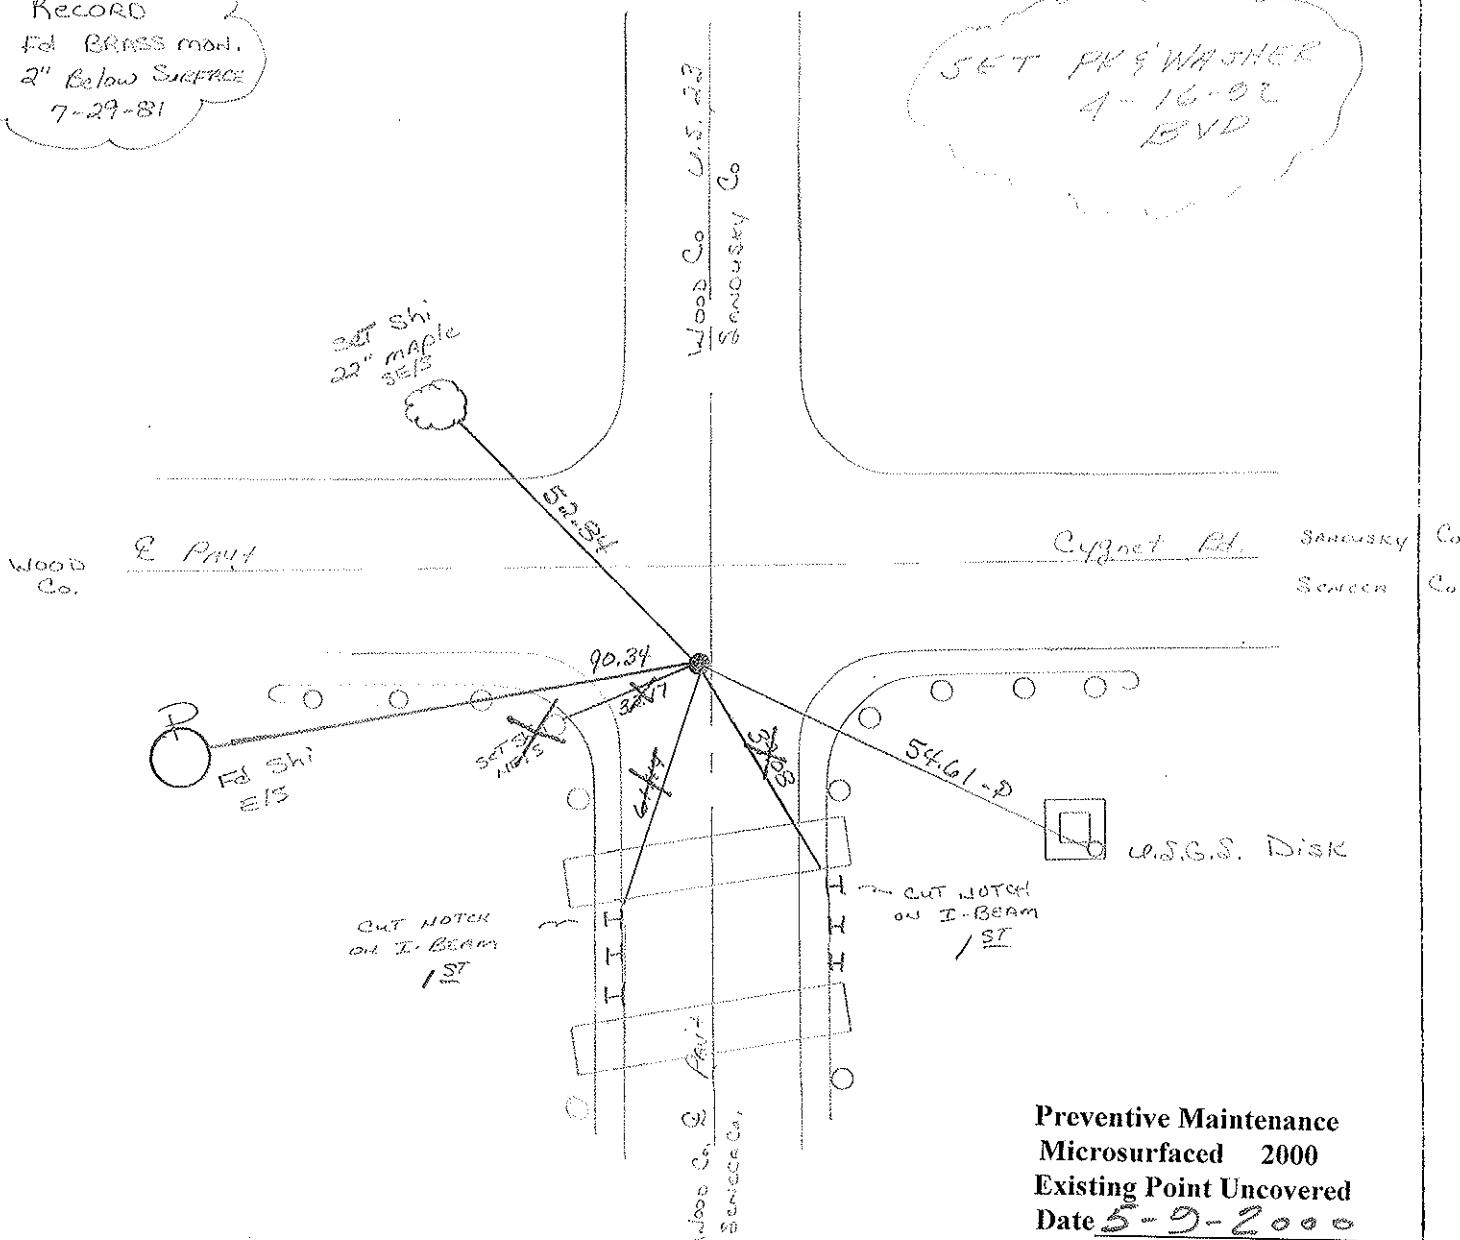 RECORD
Fd BRASS MON.
2" Below SURFACE
7-29-81
SET PK & WASHER
4-16-92
BVD
WOOD Co U.S. 23
SANDUSKY Co
SET Shi
22" MAPLE
SE/S
52.84
WOOD
Co.
℄ PAVT
Cygnet Rd.
SANDUSKY Co
SENECA Co
90.34
Fd Shi
E/S
SET Shi
NE/S
54.61-P
U.S.G.S. Disk
CUT NOTCH
ON I-BEAM
1ST
CUT NOTCH
ON I-BEAM
1ST
WOOD Co. ℄ PAVT
SENECA Co.
Preventive Maintenance
Microsurfaced 2000
Existing Point Uncovered
Date 5-9-2000